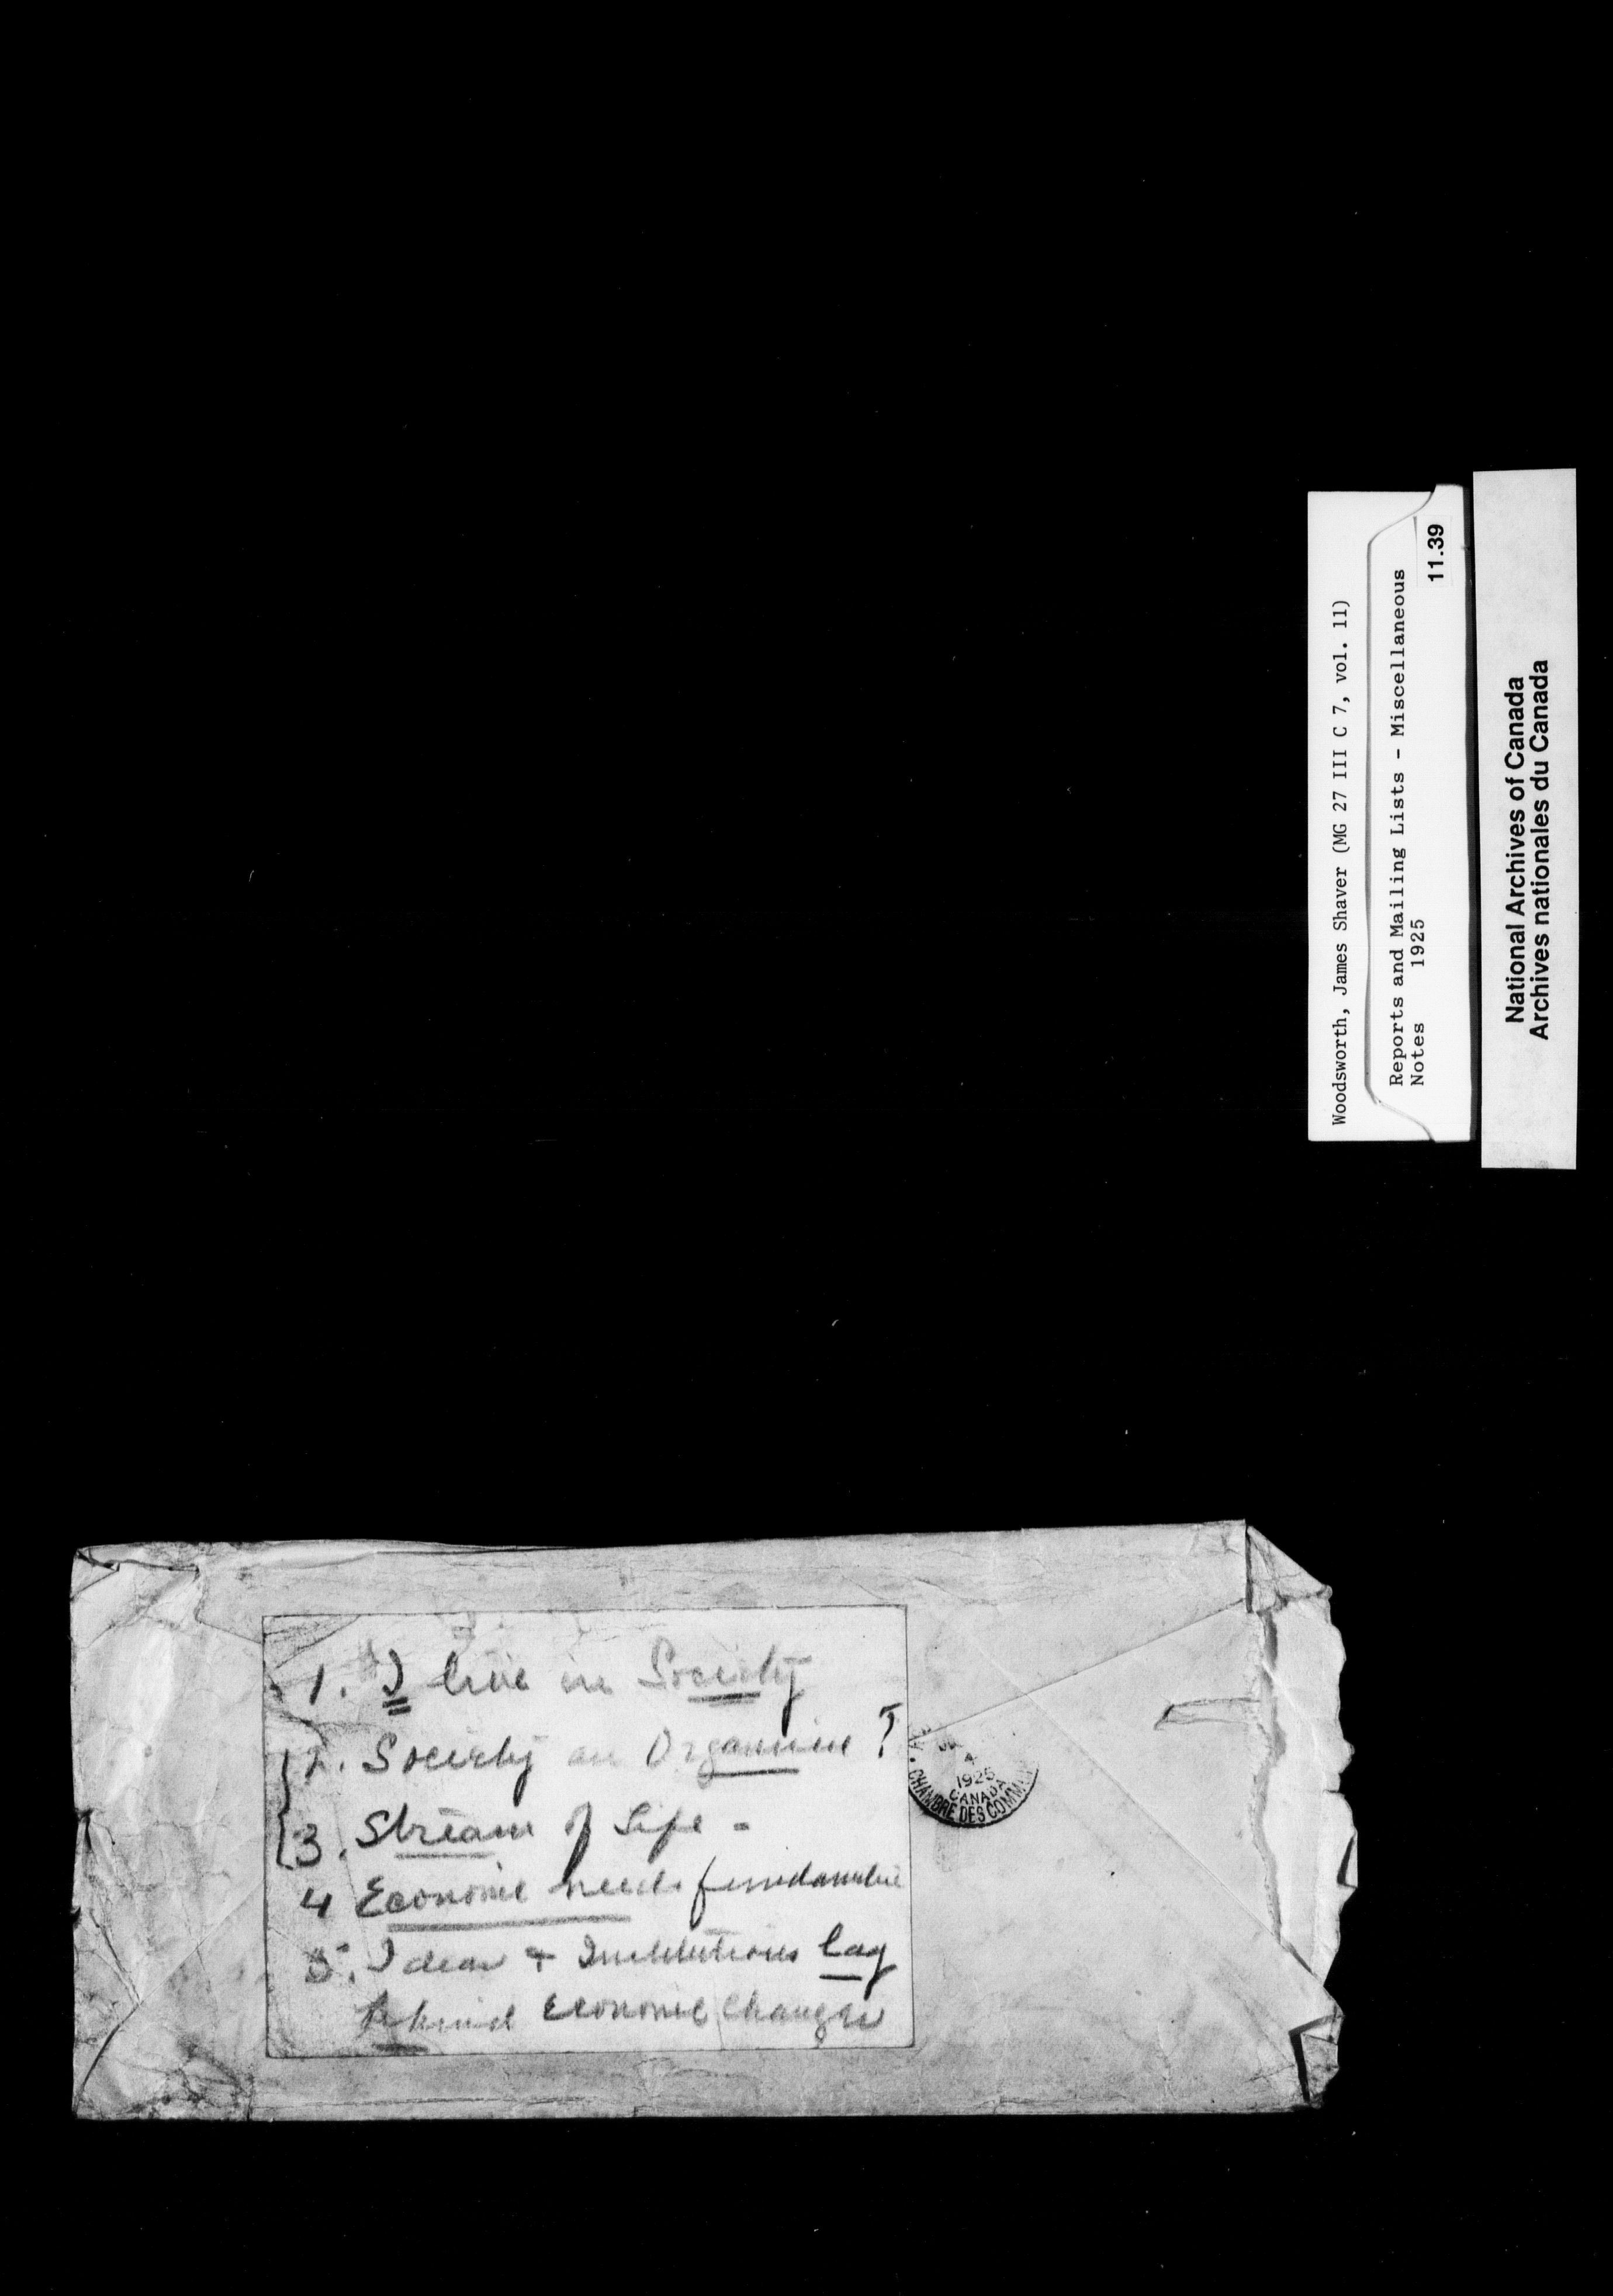 Woodsworth, James Shaver (MG 27 III C 7, vol. 11)
Reports and Mailing Lists - Miscellaneous
Notes 1925
11.39
National Archives of Canada
Archives nationales du Canada
1. I live in Society
2. Society an Organism ?
3. Stream of Life -
4 Economic needs
5. Ideas + Institutions lag
behind Economic Changes
4
1925
CANADA
CHAMBRE DES